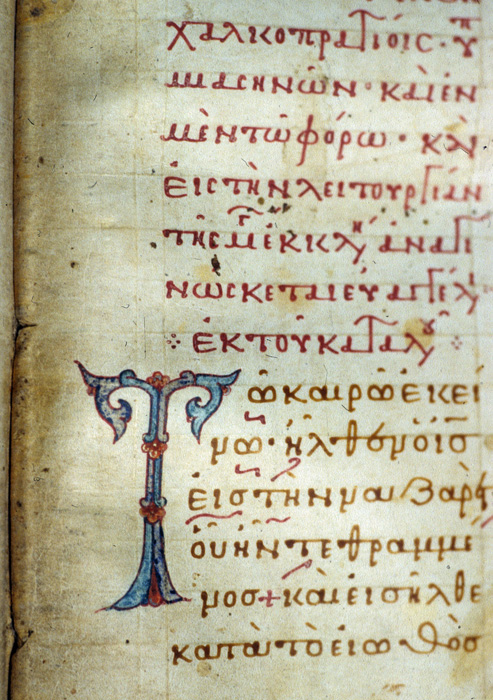 χαλκοπρατίοις· ὑπ
μιασηνῶν· καὶ ἐν
μὲν τῶ φόρω· καὶ
εἰς τὴν λειτουργίαν
τῆς μγ ἐκκλη ἀναγι
νώσκεται εὐαγγελι
ἐκ τοῦ κατὰ λου
Τῶ καιρῶ ἐκεί
νω· ἦλθεν ὁ ις
εἰς τὴν ναζαρε
οὗ ἦν τεθραμμέ
νος + καὶ εἰσῆλθε
κατὰ τὸ εἰωθὸς